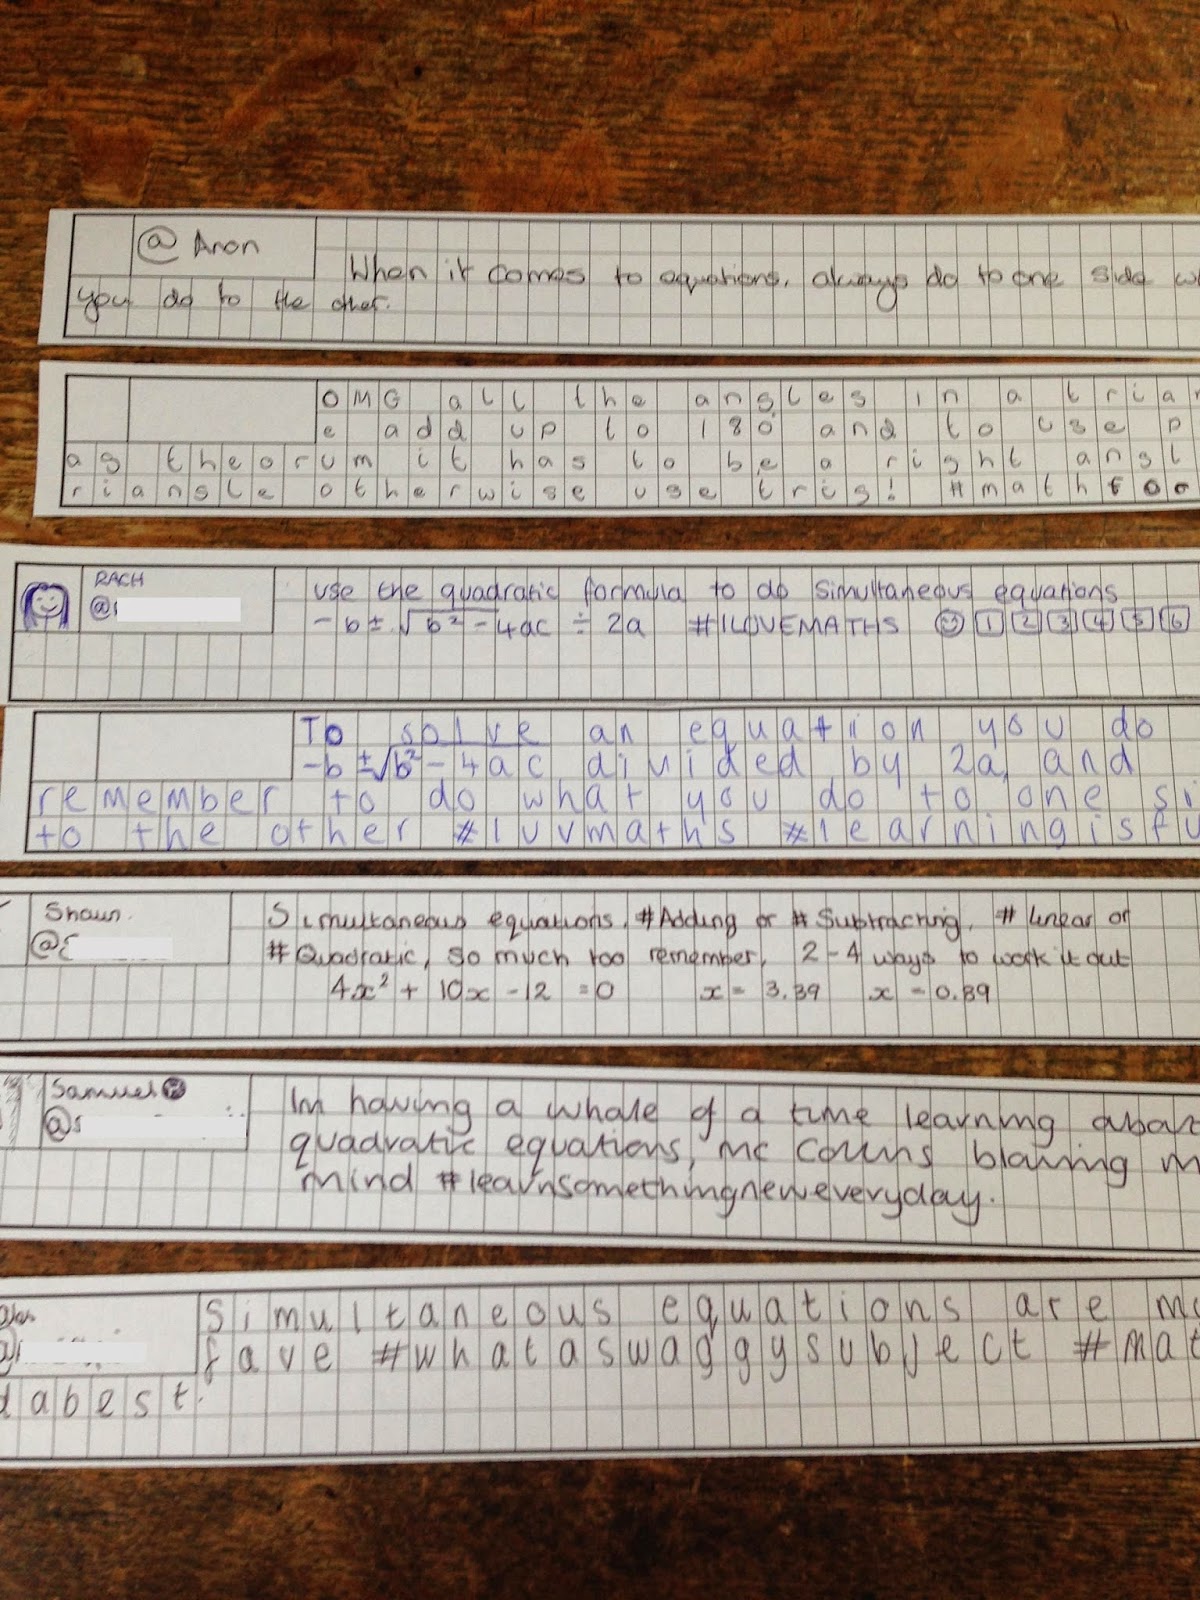 @ Anon
When it comes to equations, always do to one side
you do to the other.
OMG all the angles in a trian
e add up to 180° and to use p
ag theorum it has to be a right angl
riangle otherwise use trig! #mathfor
RACH
@
use the quadratic formula to do simultaneous equations
-b ± √b² - 4ac ÷ 2a #ILOVEMATHS ☺ 1 2 3 4 5 6
To solve an equation you do
-b ±√b² - 4ac divided by 2a, and
remember to do what you do to one si
to the other #luvmaths #learningisfu
Shaun.
@
Simultaneous equations, #Adding or #Subtracting, #linear or
#Quadratic, so much too remember, 2-4 ways to work it out
4x² + 10x - 12 = 0 x = 3.39 x = 0.89
Samuel
@s
Im having a whale of a time learning about
quadratic equations, mc Couns blawing m
mind #learnsomethingneweveryday.
@
Simultaneous equations are m
fave #whataswaggysubject #mat
dabest.